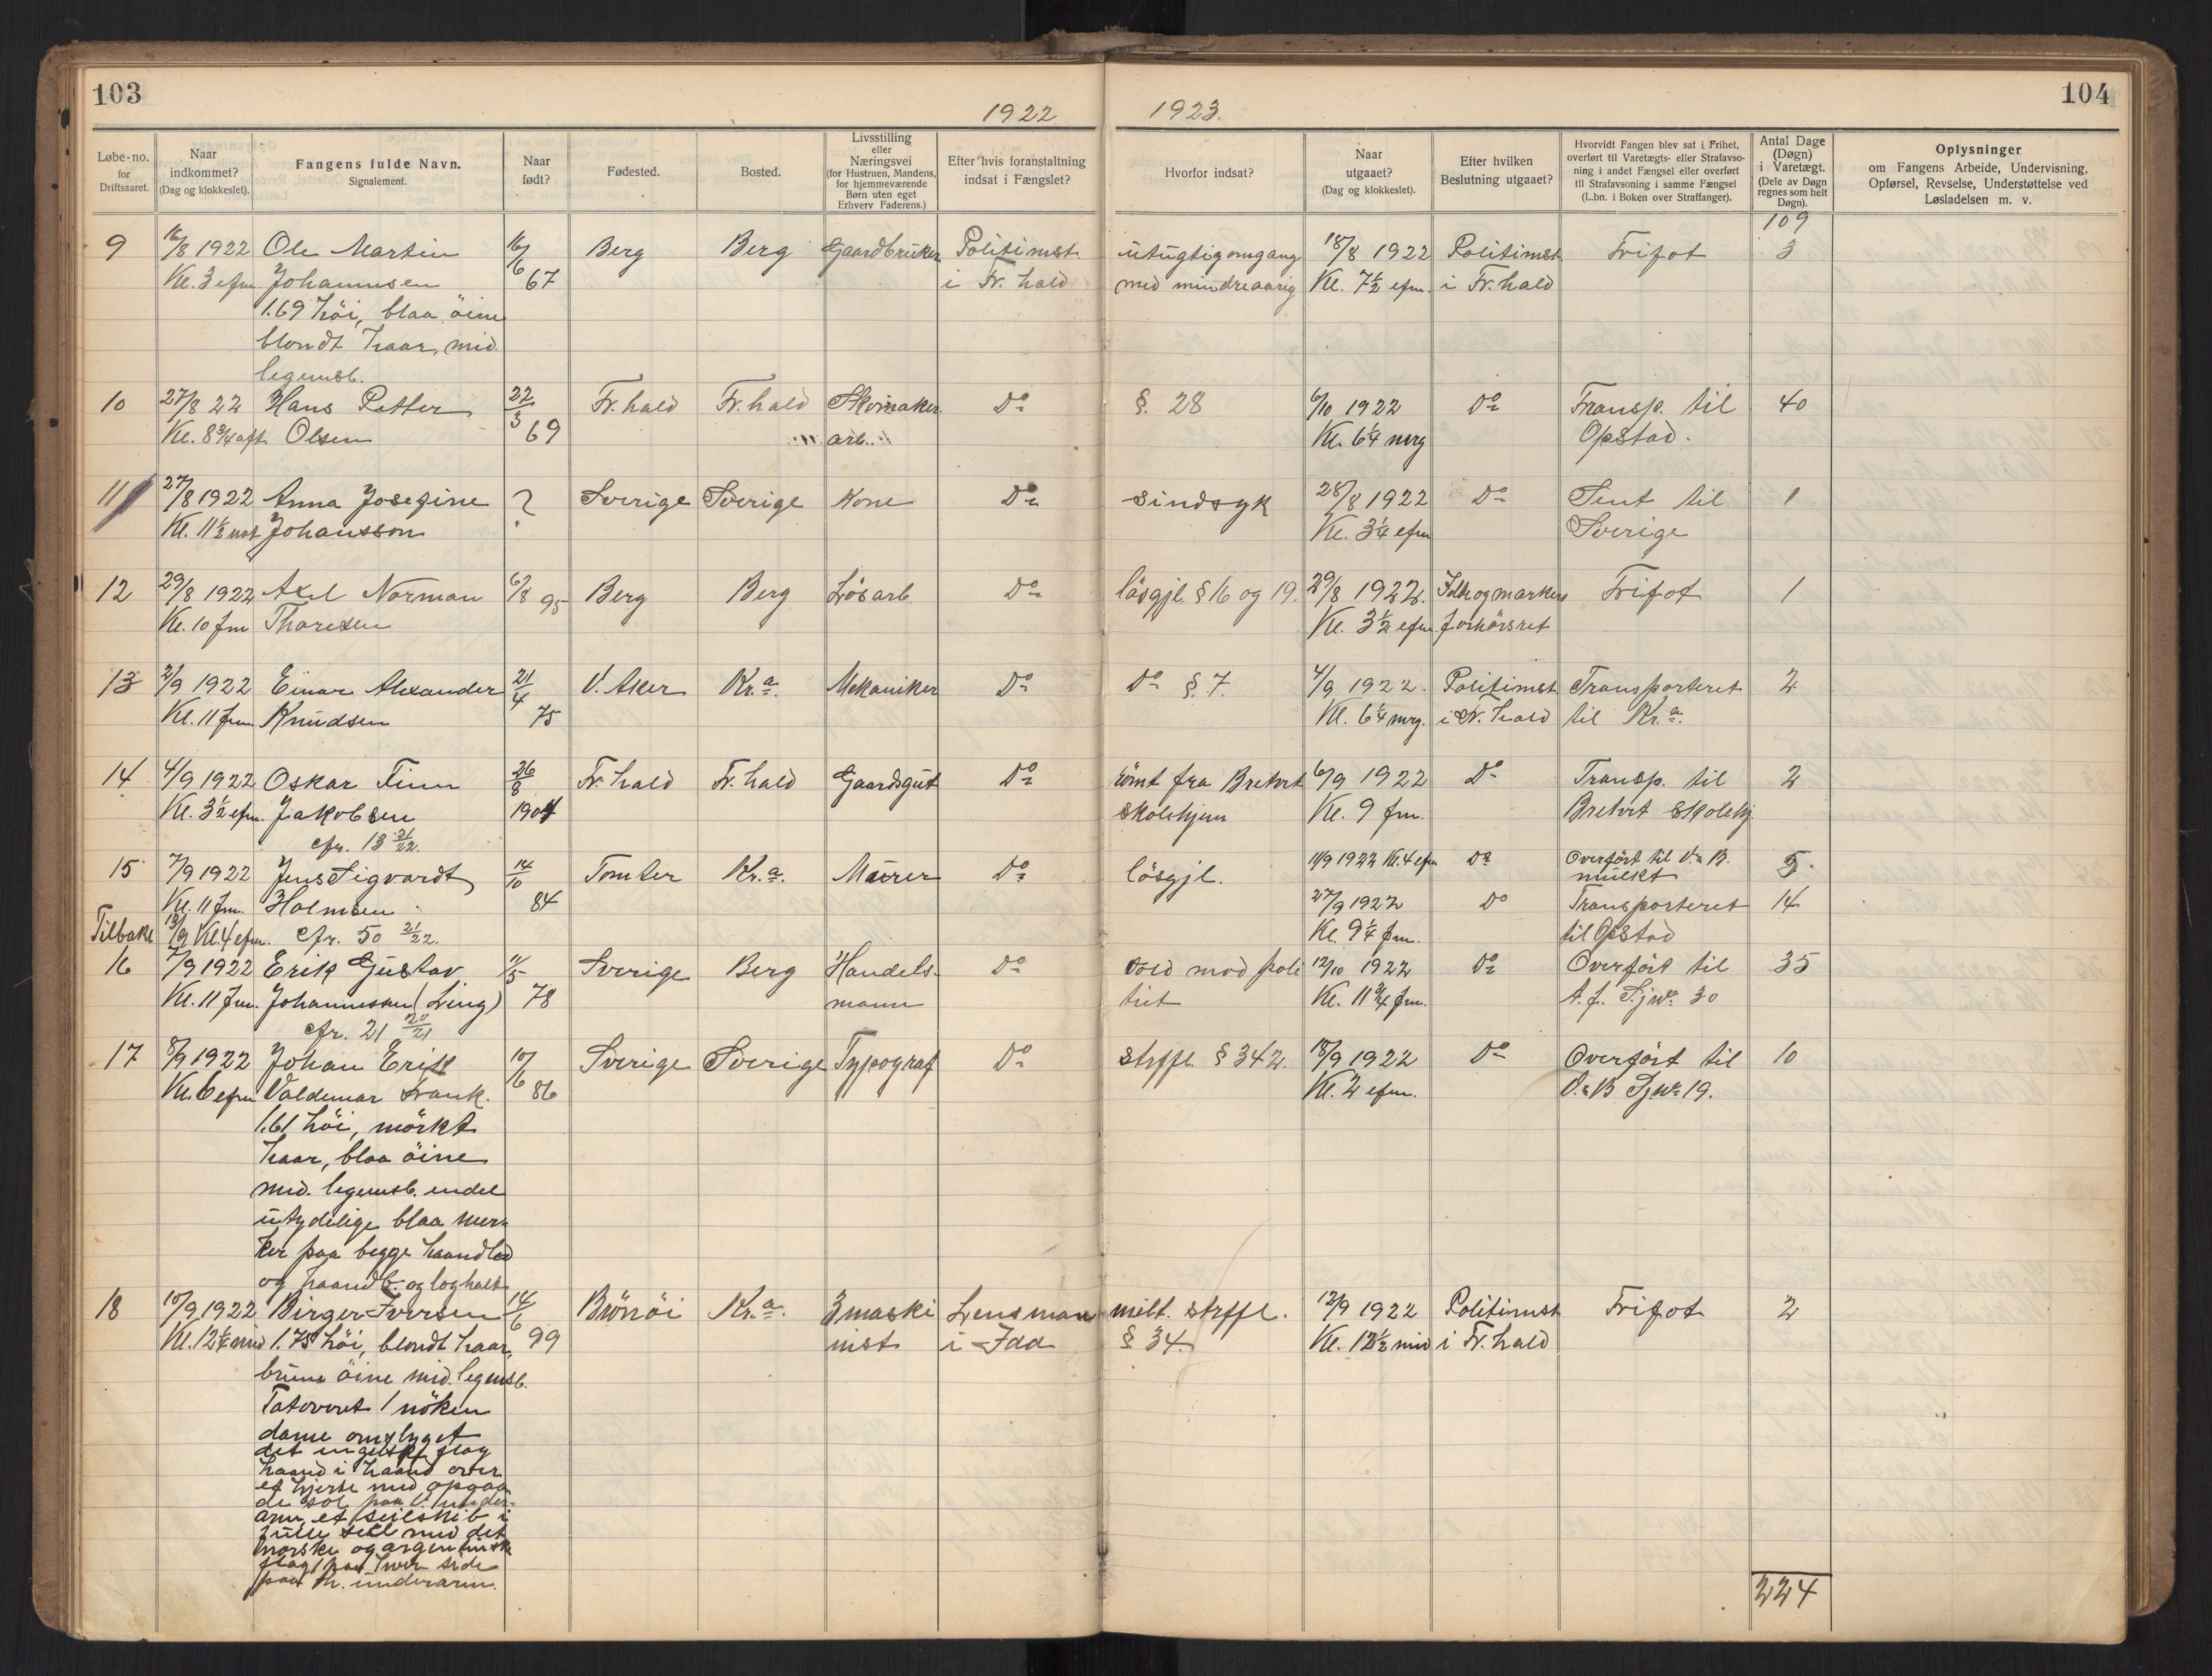 103
1922
1923.
104
Løbe-no. for Driftsaaret.
Naar indkommet? (Dag og klokkeslet).
Fangens fulde Navn. Signalement.
Naar født?
Fødested.
Bosted.
Livsstilling eller Næringsvei (for Hustruen, Mandens, for hjemmeværende Børn uten eget Erhverv Faderens.)
Efter hvis foranstaltning indsat i Fængslet?
Hvorfor indsat?
Naar utgaaet? (Dag og klokkeslet).
Efter hvilken Beslutning utgaaet?
Hvorvidt Fangen blev sat i Frihet, overført til Varetægts- eller Strafavsoning i andet Fængsel eller overført til Strafavsoning i samme Fængsel (L.bn. i Boken over Straffanger).
Antal Dage (Døgn) i Varetægt. (Dele av Døgn regnes som helt Døgn).
Oplysninger om Fangens Arbeide, Undervisning, Opførsel, Revselse, Understøttelse ved Løsladelsen m. v.
109
9 16/8 1922 Ole Martin 16/6 Berg Berg Gaardbruker Politimst. utugtig omgang 18/8 1922 Politimst. Frifot 3
Kl. 3 efm. Johannsen 67 i Fr. hald med mindreaarig Kl. 7½ efm. i Fr. hald
1.69 höi, blaa öine
blondt haar, mid.
legemsb.
10 27/8 22 Hans Petter 22/3 Fr. hald Fr. hald Skomaker Do §. 28 6/10 1922 Do Transp. til 40
Kl. 8¾ aft Olsen 69 arb. Kl. 6¼ mrg Opstad.
11 27/8 1922 Anna Josefine ? Sverige Sverige Kone Do sindsyk 28/8 1922 Do Sent til 1
Kl. 11½ nat Johansson Kl. 3¼ efm Sverige
12 29/8 1922 Axel Norman 6/8 95 Berg Berg Lösarb Do lösgjl. § 16 og 19. 29/8 1922. Idd og markers Frifot 1
Kl. 10 fm Thoresen Kl. 3½ efm. forhörsret
13 2/9 1922 Einar Alexander 21/4 V. Aker Kr.a. Mekaniker Do Do §. 7. 4/9 1922. Politimst. Transporteret 2
Kl. 11 fm Knudsen 75 Kl. 6¼ mrg. i Fr. hald til Kr.a.
14 4/9 1922 Oskar Finn 26/8 Fr. hald Fr. hald Gaardsgut Do römt fra Bretvet 6/9 1922 Do Transp. til 2
Kl. 3½ efm. Jakobsen 1904 skolehjem Kl. 9 fm. Bretvet skolehj
cfr. 13 21/22.
15 7/9 1922 Jens Sigvardt 14/10 Tomter Kr.a. Murer Do lösgjl. 11/9 1922 Kl. 4 efm Do Overfört til V. B. mulkt 5.
Kl. 11 fm. Holmsen 84 27/9 1922 Do Transporteret 14
Tilbake 13/9 Kl. 4 efm. cfr. 50 21/22. Kl. 9¼ fm. til Opstad
16 7/9 1922 Erik Gustav 1/5 Sverige Berg Handels- Do Vold mod poli 12/10 1922 Do Overfört til 35
Kl. 11 fm. Johannesen (Ling) 78 mann tiet Kl. 11¾ fm. A. f. Sj. No. 30
cfr. 21 20/21
17 8/9 1922 Johan Erik 10/6 Sverige Sverige Typograf Do strffl. § 342. 18/9 1922 Do Overfört til 10
Kl. 6 efm Valdemar Frank. 86 Kl. 2 efm. V. B Sj No 19.
1.61 höi, mörkt
haar, blaa öine
mid. legemsb. endel
utydelige blaa mer-
ker paa begge haandled
og haandb. og loghalt
18 10/9 1922 Birger Iversen 14/6 Brönöi Kr.a. 3 maski Lensman milt. strffl. 12/9 1922 Politimst. Frifot 2
Kl. 12¼ mid 1.75 höi, blondt haar, 99 nist i Idd § 34. Kl. 12½ mid i Fr. hald
brune öine mid. legemsb.
Tatoveret 1 nöken
dame omslynget
det engelske flag
haand i haand over
et hjerte med opgaa
de sol paa V. under-
arm, et seilskib i
fulle seil med det
norske og argentinske
flag paa hver side
paa h. underarm.
224